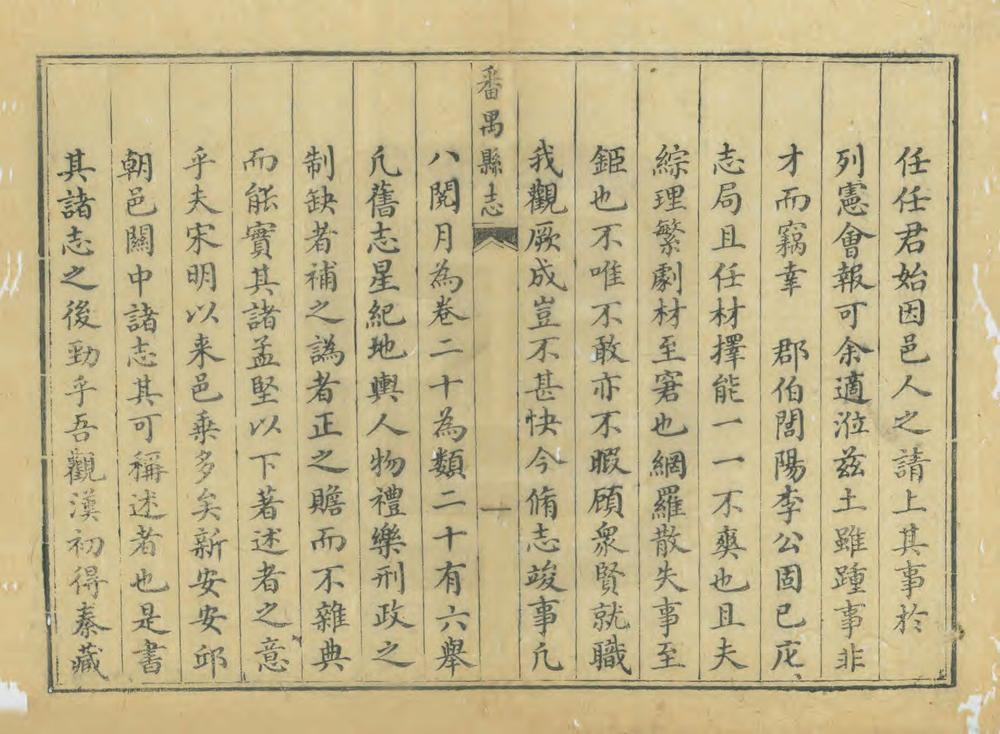 任任君始因邑人之請上其事於
列憲會報可余適涖茲土雖踵事非
才而竊幸　郡伯閭陽李公固已庀
志局且任材擇能一一不爽也且夫
綜理繁劇材至窘也網羅散失事至
鉅也不唯不敢亦不暇頋衆賢就職
我觀厥成豈不甚快今脩志竣事凢
番禺縣志
一
八閱月為卷二十為類二十有六舉
凢舊志星紀地輿人物禮樂刑政之
制缺者補之譌者正之贍而不雜典
而能實其諸孟堅以下著述者之意
乎夫宋明以来邑乗多矣新安安邱
朝邑關中諸志其可稱述者也是書
其諸志之後勁乎吾觀漢初得秦藏